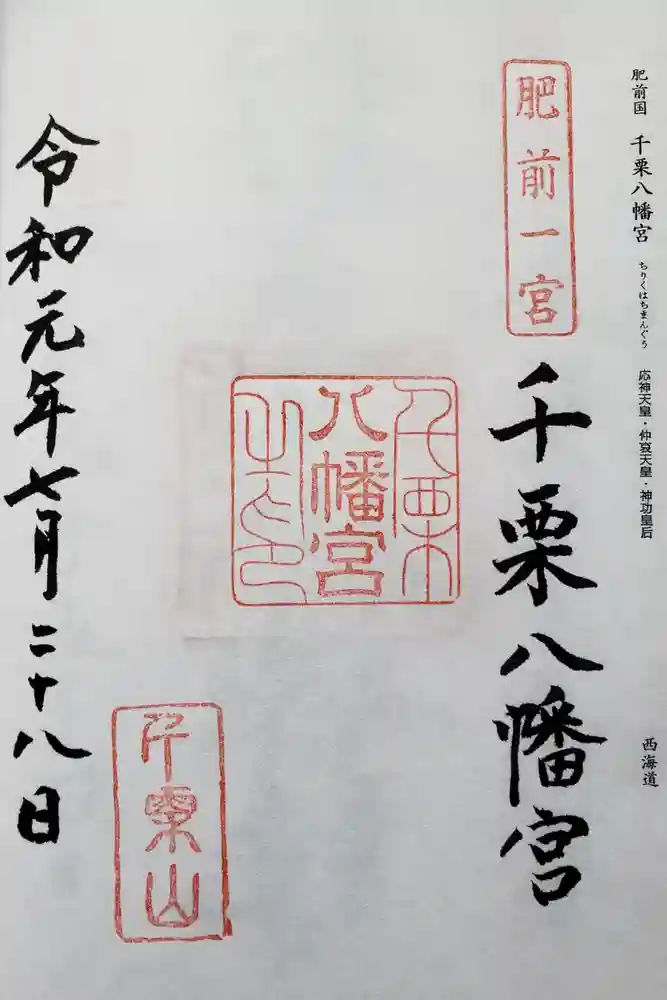 肥前国 千栗八幡宮 ちりくはちまんぐう 応神天皇・仲哀天皇・神功皇后 西海道
肥前一宮
千栗八幡宮
千栗
八幡宮
之印
千栗山
令和元年七月二十八日